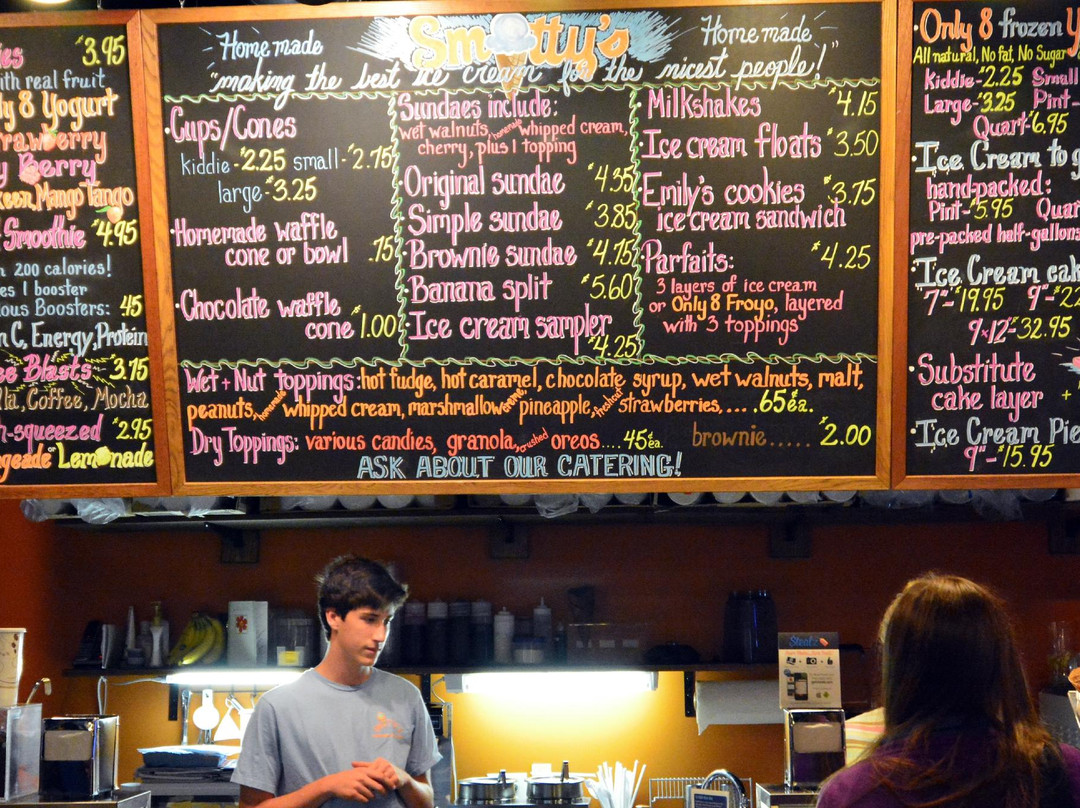 ies $3.95
with real fruit
ly 8 Yogurt
trawberry
y Berry
keen, Mango Tango
Smoothie $4.95
n 200 calories!
es 1 booster
ious Boosters: 45
n C, Energy, Protein
ee Blasts - 3.75
lla, Coffee, Mocha
h-squeezed $2.95
ngeade or Lemonade
Home made Smotty's Home made
"making the best ice cream for the nicest people!"
· Cups/Cones
kiddie - $2.25 small - $2.75
large - $3.25
· Homemade waffle
cone or bowl .75
· Chocolate waffle
cone $1.00
Sundaes include:
wet walnuts, homemade whipped cream,
cherry, plus 1 topping
· Original sundae $4.35
· Simple sundae $3.85
· Brownie sundae $4.75
· Banana split $5.60
· Ice cream sampler
$4.25
· Milkshakes $4.15
· Ice cream floats $3.50
· Emily's cookies $3.75
ice cream sandwich
· Parfaits: $4.25
3 layers of ice cream
or Only 8 Froyo, layered
with 3 toppings
Wet + Nut toppings: hot fudge, hot caramel, chocolate syrup, wet walnuts, malt,
peanuts, homemade whipped cream, marshmallow creme, pineapple, fresh cut strawberries,.... .65 ea.
Dry Toppings: various candies, granola, crushed oreos.... 45¢ ea. brownie..... $2.00
ASK ABOUT OUR CATERING!
· Only 8 frozen Y
All natural, No fat, No Sugar
Kiddie - 2.25 Small
Large - 3.25 Pint -
Quart - 6.95
· Ice Cream to g
hand-packed:
Pint - $5.95 Quar
pre-packed half-gallons
· Ice Cream cak
7" - $19.95 9" - $2
9x12 - $32.95
· Substitute
cake layer +
· Ice Cream Pie
9" - $15.95